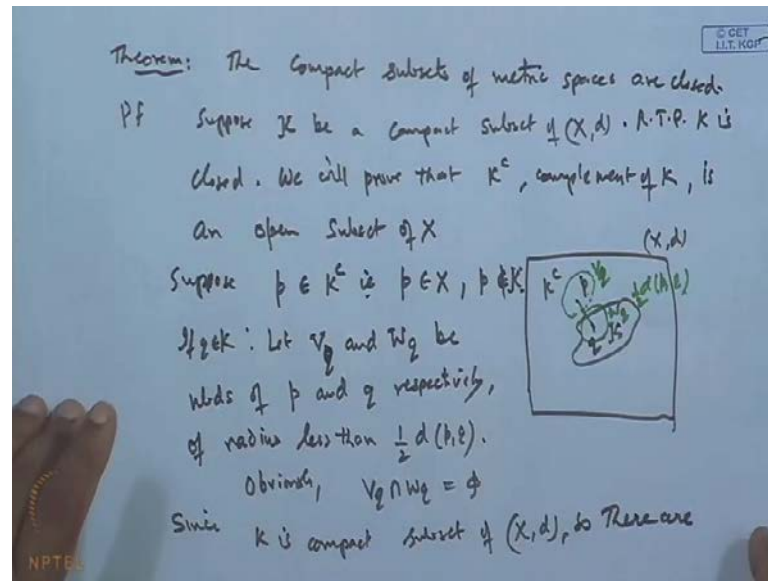 © CET
I.I.T. KGP
Theorem: The Compact subsets of metric spaces are closed.
Pf Suppose K be a compact subset of (X,d). R.T.P. K is
closed. We will prove that K^c, complement of K, is
an open subset of X
(X,d)
Suppose p ∈ K^c ie p ∈ X, p ∉ K.
K^c p V_q ½ d(p,q)
W_q K q
If q∈K : Let V_q and W_q be
nbds of p and q respectively,
of radius less than ½ d(p,q).
Obviously, V_q ∩ W_q = φ
Since K is compact subset of (X,d), so There are
NPTEL